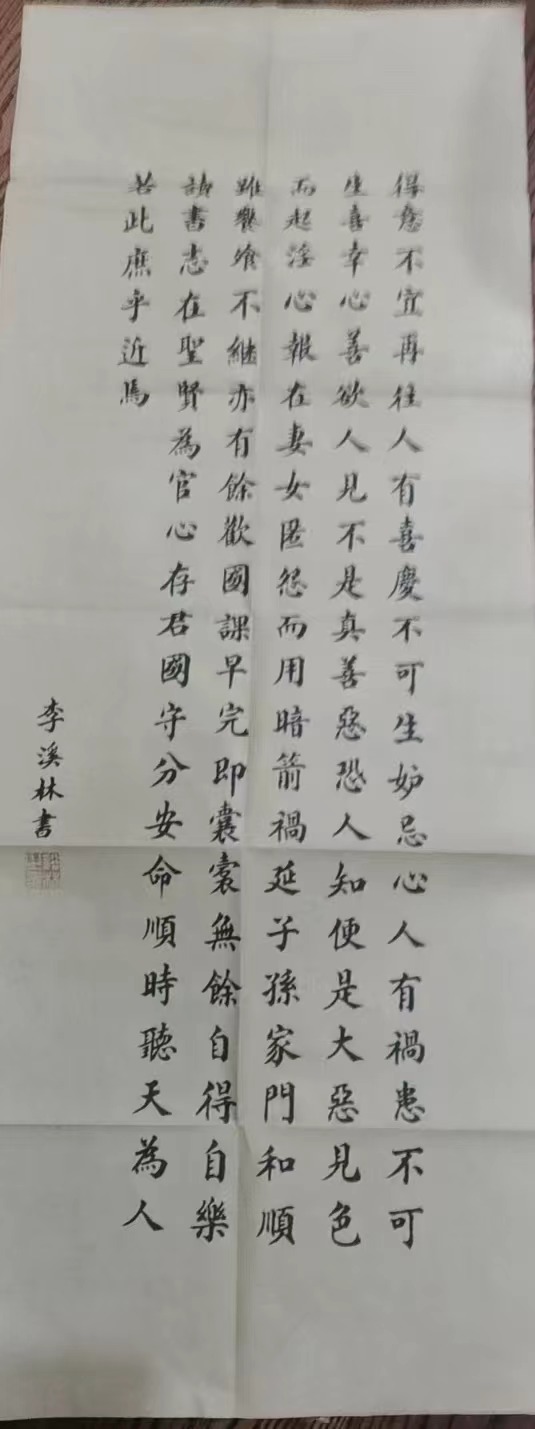 得意不宜再往人有喜慶不可生妒忌心人有禍患不可
生喜幸心善欲人見不是真善惡恐人知便是大惡見色
而起淫心報在妻女匿怨而用暗箭禍延子孫家門和順
雖饔飧不継亦有餘歡國課早完即囊橐無餘自得自樂
讀書志在聖賢為官心存君國守分安命順時聽天為人
若此庶乎近焉
李溪林書